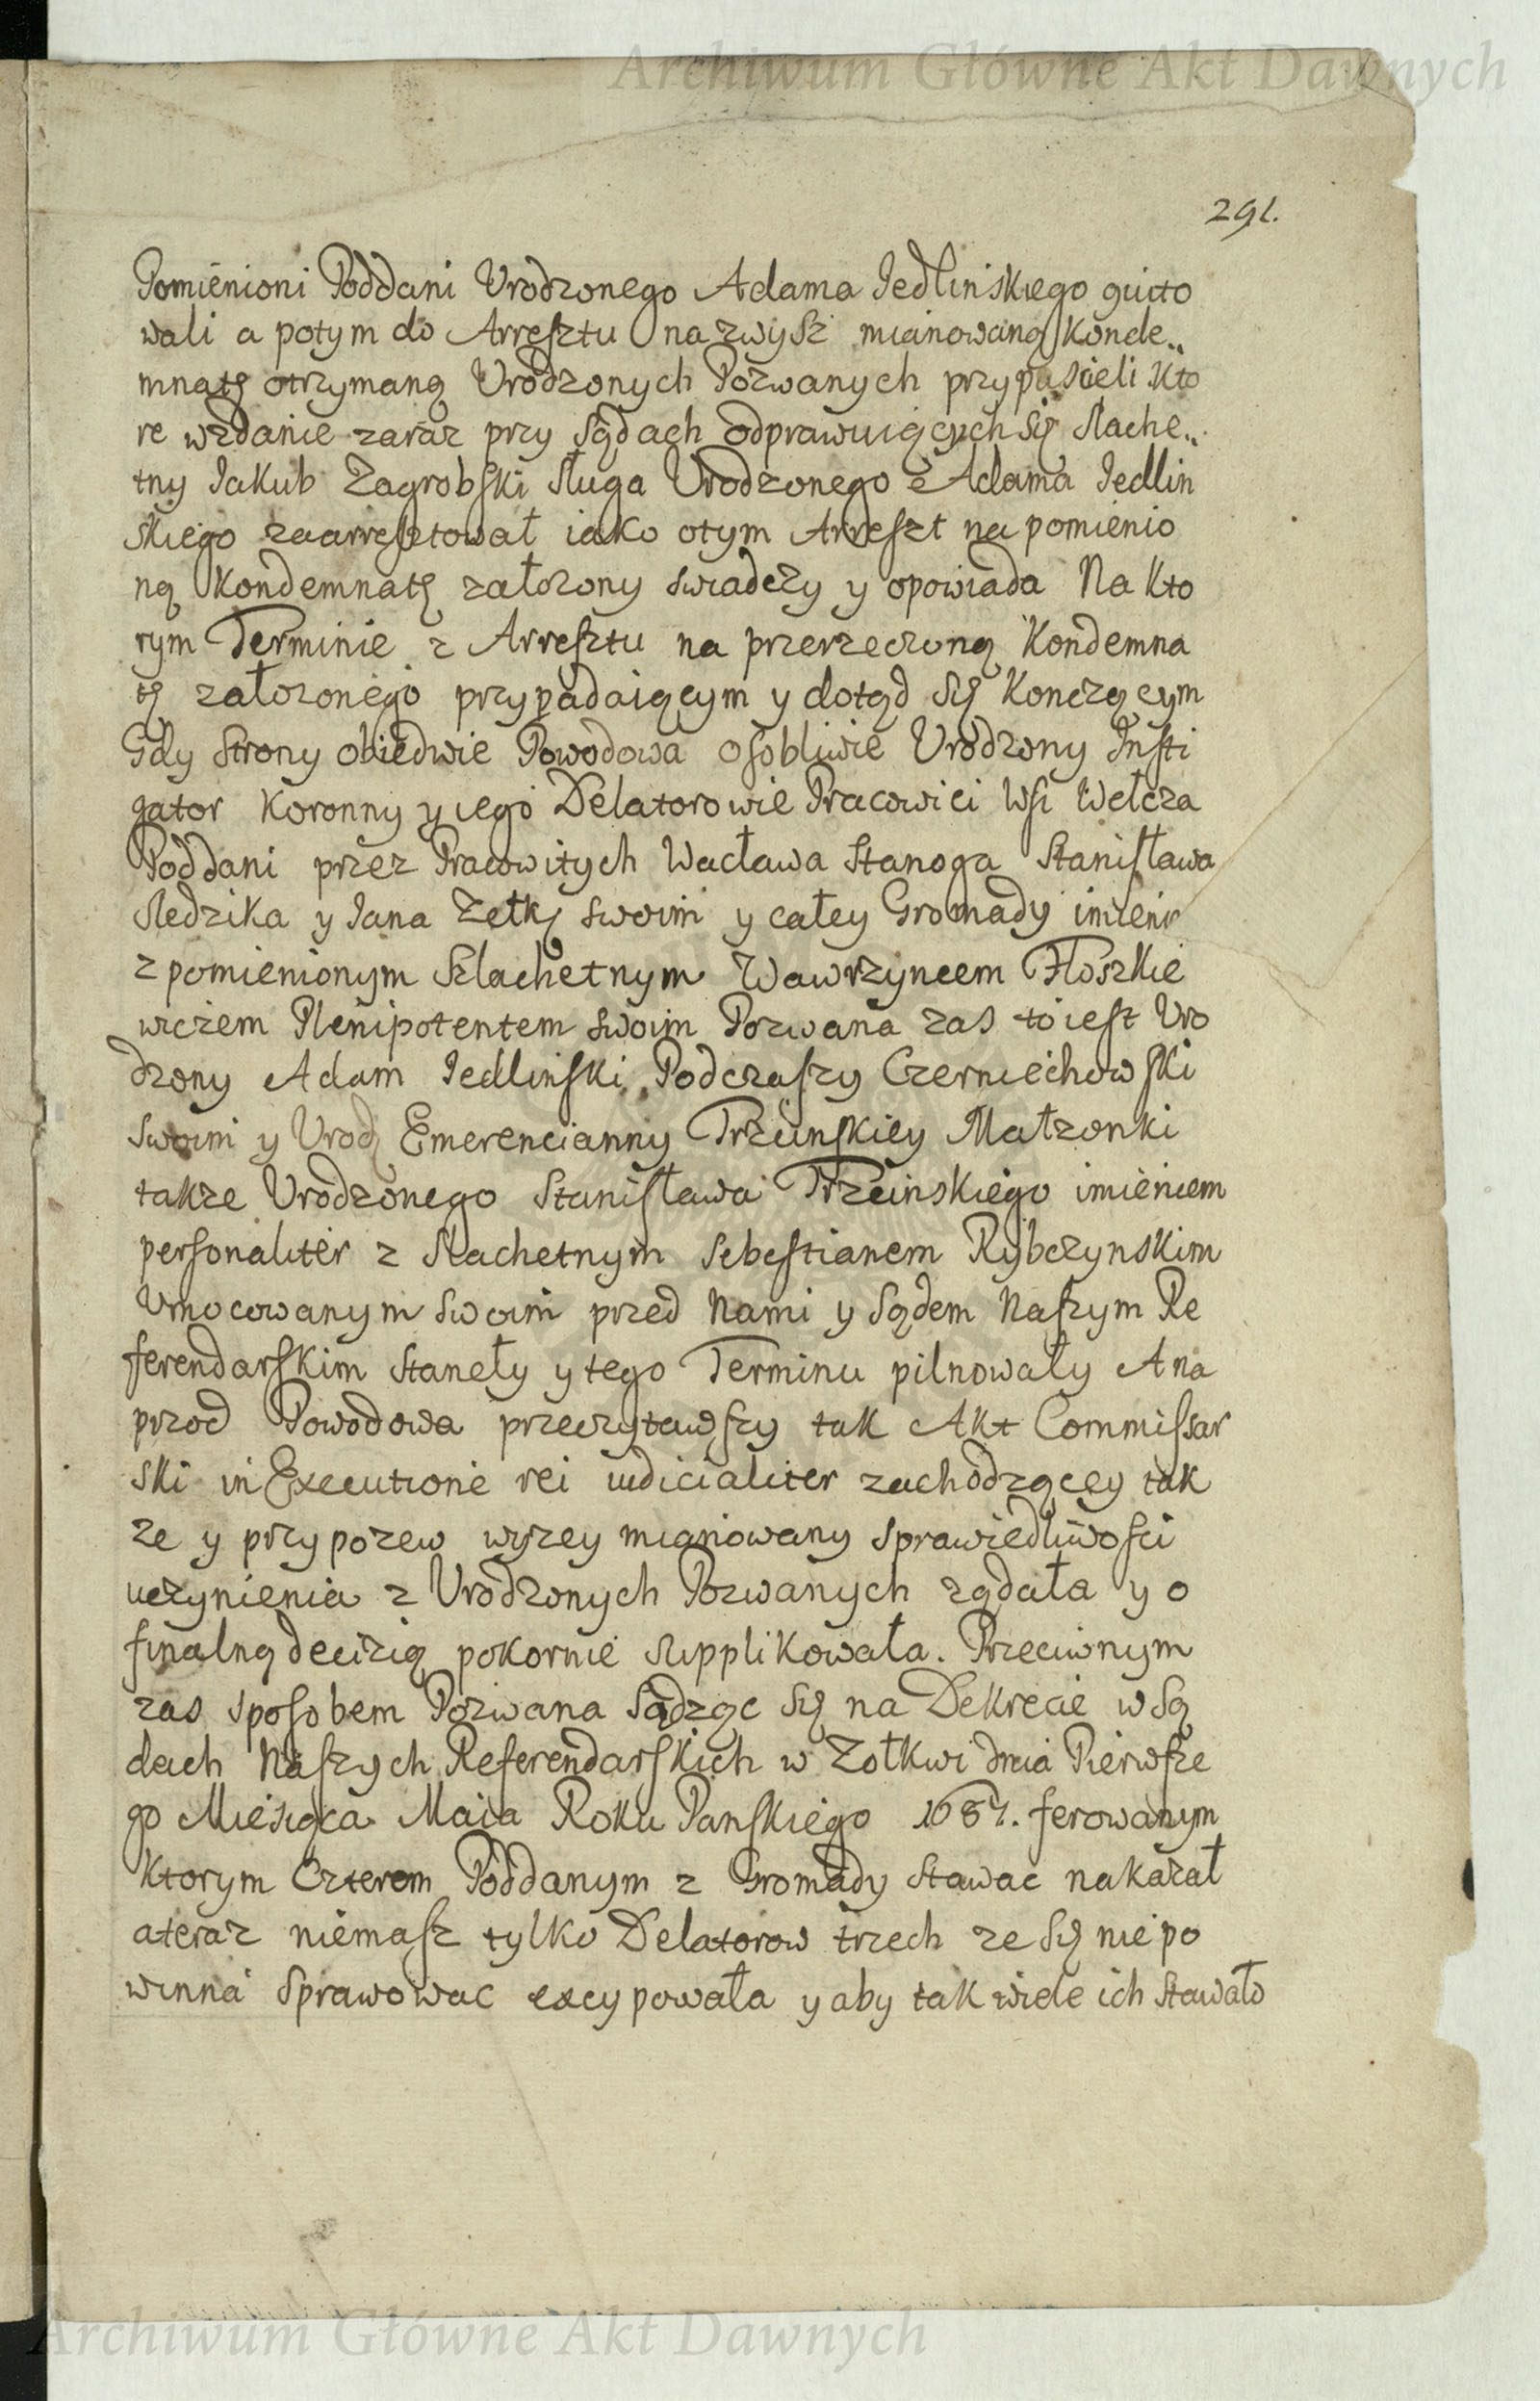 Archiwum Główne Akt Dawnych
291.
Pomienioni Poddani Vrodzonego Adama Iedlinskiego quito
wali a potym do Arresztu na zwysz mianowaną Konde„
mnatę otrzymaną Vrodzonych Pozwanych przypuscieli kto
re wzdanie zaraz przy Sądach odprawuiących się Slache„
tny Iakub Zagrobski sługa Vrodzonego Adama Iedlin
skiego zaarresztował iako otym Arreszt na pomienio
ną Kondemnatę załozony swiadczy y opowiada Na kto
rym Terminie z Arresztu na przerzeczoną Kondemna
tę załozonego przypadaiącym y dotąd się Konczącym
Gdy Strony obiedwie Powodowa osobliwie Vrodzony Insti
gator Koronny y iego Delatorowie Pracowici Wsi Wełcza
Poddani przez Pracowitych Wacława Stanoga Stanisława
Sledzika y Iana Zetkę swoim y całey Gromady imieniē
z pomienionym Szlachetnym Wawrzyncem Floszkie
wiczem Plenipotentem swoim Pozwana zas to iest Vro
dzony Adam Iedlinski Podczaszy Czerniechowski
swoim y Vrodz Emerencianny Trzcinskiey Małzonki
takze Vrodzonego Stanisława Trzcinskiego imieniem
personaliter z Slachetnym Sebestianem Rybczynskim
Vmocowanym swoim przed Nami y Sądem Naszym Re
ferendarskim Stanęły y tego Terminu pilnowały A na
przod Powodowa przeczytawszy tak Akt Commissar
ski in Executione rei iudicialiter zachodzącey tak
ze y przypozew wyzey mianowany sprawiedliwosci
uczynienia z Vrodzonych Pozwanych ządała y o
finalną decizią pokornie supplikowała. Przeciwnym
zas sposobem Pozwana Sądząc się na Dekrecie w Są
dach Naszych Referendarskich w Zołkwi dnia Pierwsze
go Miesiąca Maia Roku Panskiego 1687. ferowanym
Ktorym Czterom Poddanym z Gromady stawac nakazał
a teraz niemasz tylko Delatorow trzech ze się niepo
winna sprawowac excypowała y aby tak wiele ich stawało
Archiwum Główne Akt Dawnych